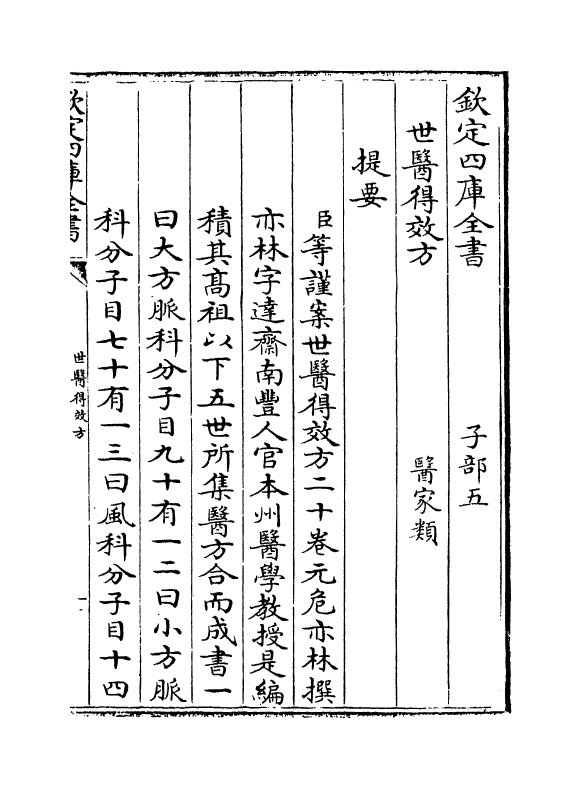 欽定四庫全書　子部五
世醫得效方　醫家類
提要
臣等謹案世醫得效方二十卷元危亦林撰
亦林字達齋南豐人官本州醫學教授是編
積其高祖以下五世所集醫方合而成書一
曰大方脈科分子目九十有一二曰小方脈
科分子目七十有一三曰風科分子目十四
欽定四庫全書
世醫得效方
一